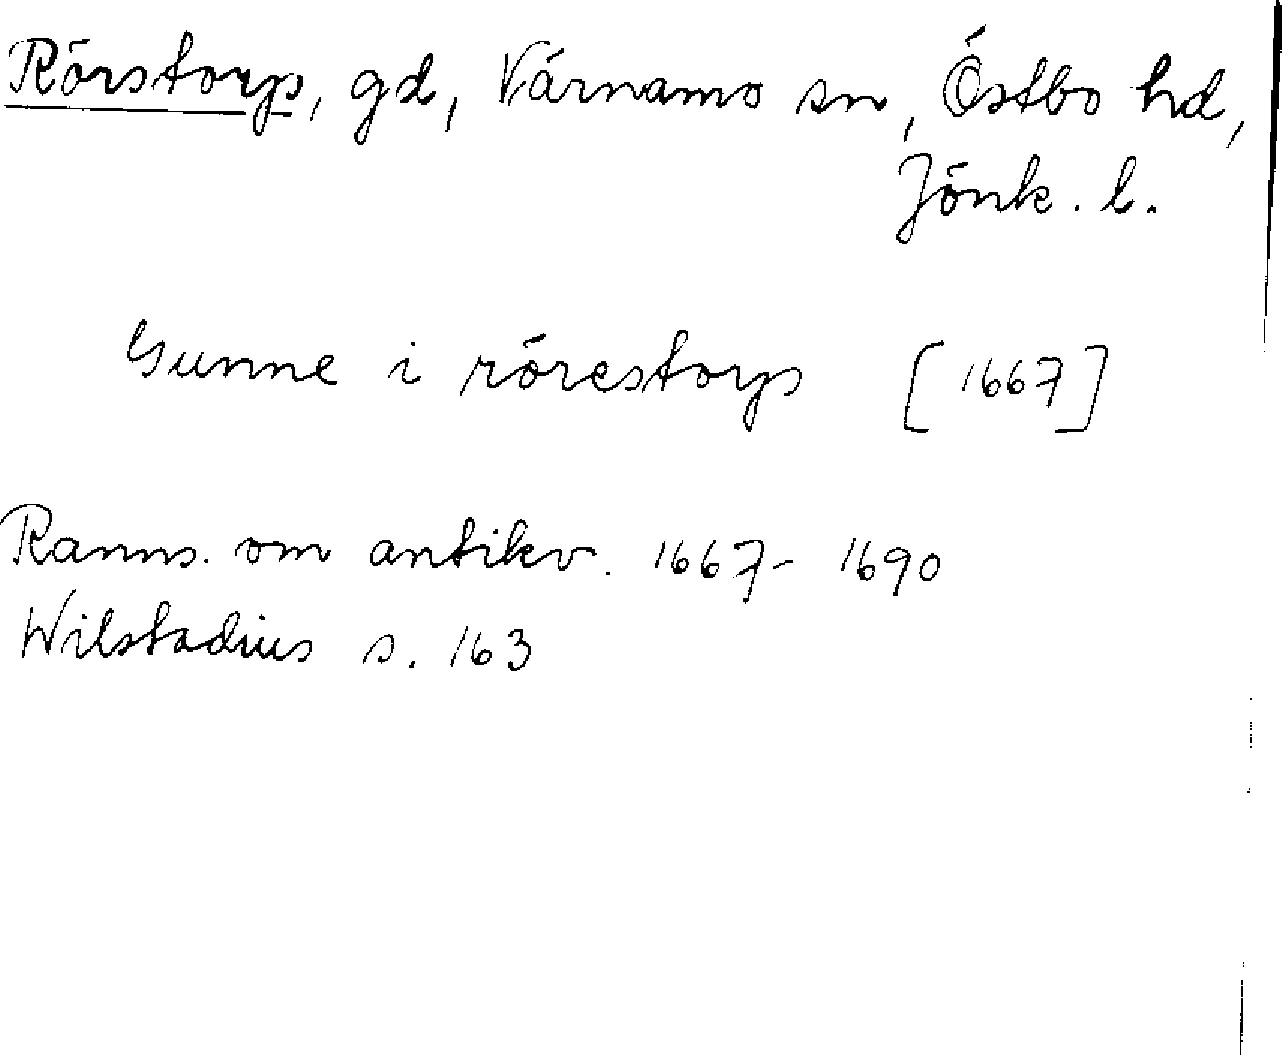 Rörstorp, gd, Värnamo sn, Östbo hd,
Jönk. l.
Gunne i rörestorp [1667]
Ranns. om antikv. 1667-1690
Wilstadius s. 163